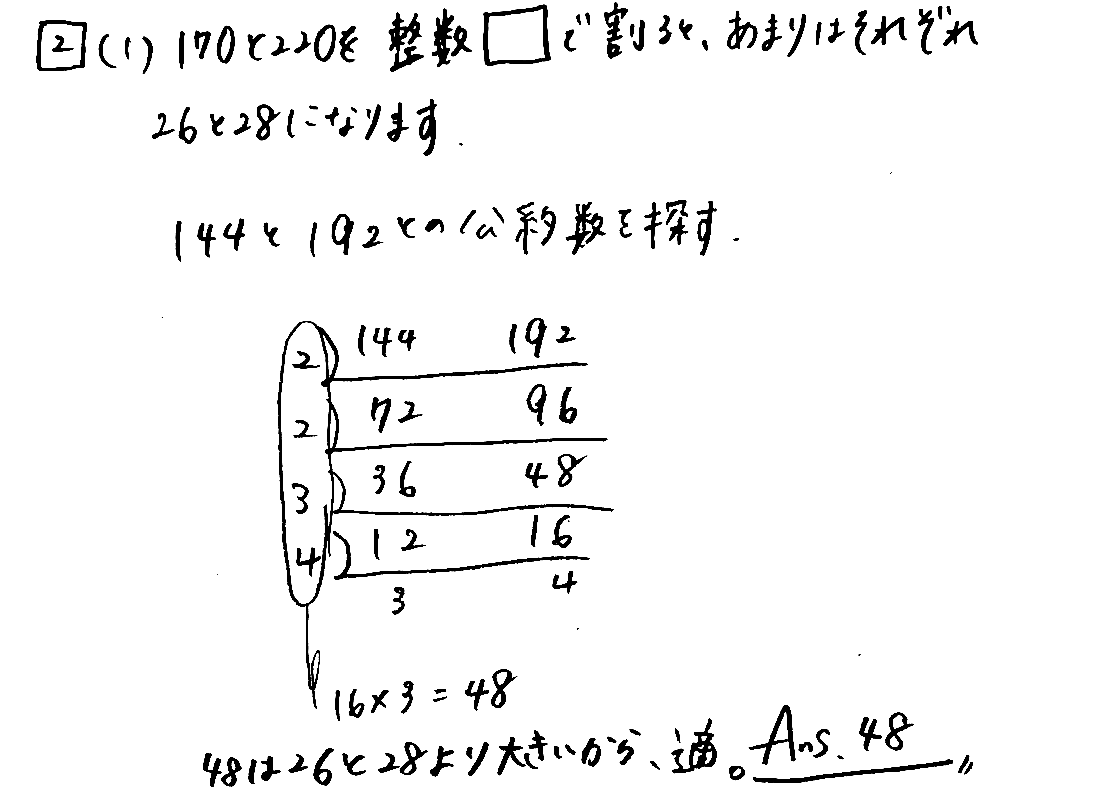 2 (1) 170と220を 整数 □ で割ると、あまりはそれぞれ
26と28になります.
144と192との公約数を探す.
2 ) 144 192
2 ) 72 96
3 ) 36 48
4 ) 12 16
3 4
16×3=48
48は26と28より大きいから、適。 Ans. 48 〃